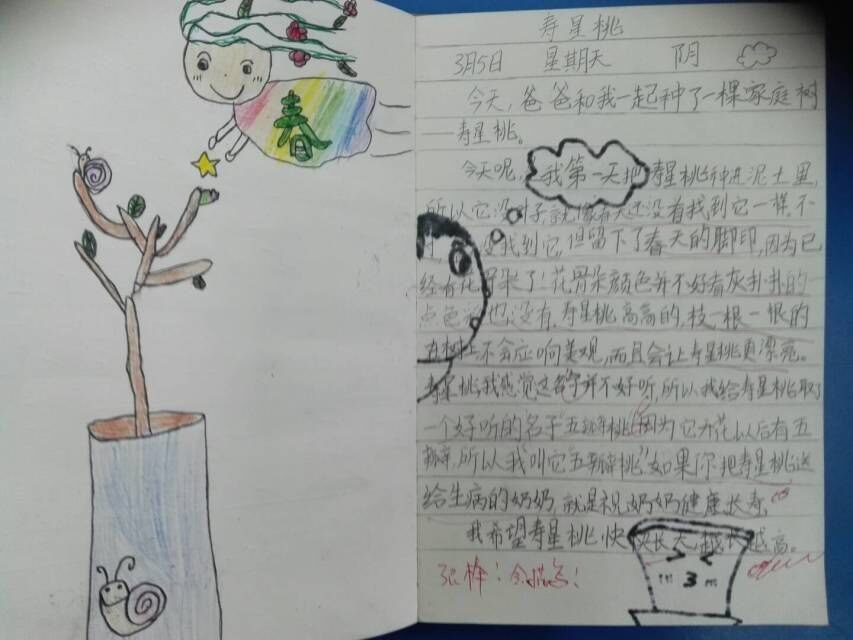 春
寿星桃
3月5日 星期天 阴
今天,爸爸和我一起种了一棵家庭树
——寿星桃。
今天呢,我第一天把寿星桃种进泥土里,
所以它没叶子就像春天还没有找到它一样,不
找到它,但留下了春天的脚印,因为已
经有花骨朵了!花骨朵颜色并不好看灰扑扑的
点色也没有,寿星桃高高的,枝一根一根的
在树上不会应响美观,而且会让寿星桃更漂亮。
寿星桃我感觉这名字并不好听,所以我给寿星桃取了
一个好听的名子"五瓣桃"因为它开花以后有五
瓣,所以我叫它"五瓣桃"如果你把寿星桃送
给生病的奶奶,就是祝奶奶健康长寿。
我希望寿星桃快快长大,越长越高。